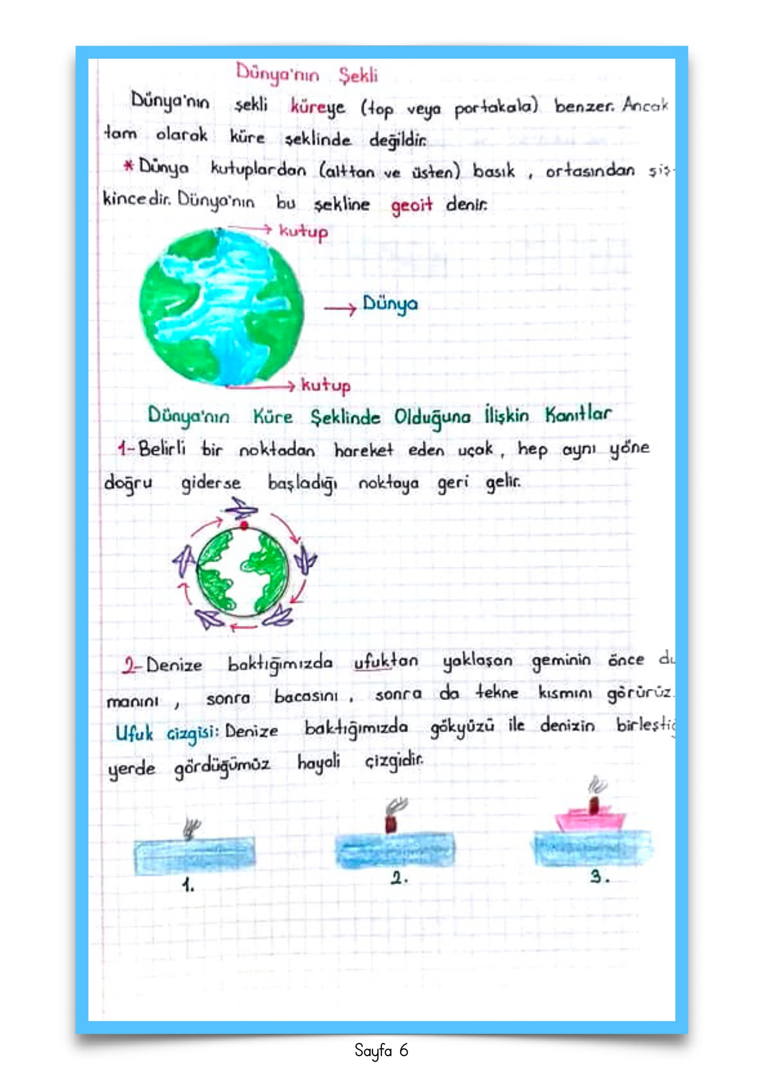 Dünya'nın Şekli
Dünya'nın şekli küreye (top veya portakala) benzer. Ancak
tam olarak küre şeklinde değildir.
* Dünya kutuplardan (alttan ve üsten) basık, ortasından şiş-
kincedir. Dünya'nın bu şekline geoit denir.
→ kutup
→ Dünya
→ kutup
Dünya'nın Küre Şeklinde Olduğuna İlişkin Kanıtlar
1- Belirli bir noktadan hareket eden uçak, hep aynı yöne
doğru giderse başladığı noktaya geri gelir.
2- Denize baktığımızda ufuktan yaklaşan geminin önce du
manını, sonra bacasını, sonra da tekne kısmını görürüz.
Ufuk çizgisi: Denize baktığımızda gökyüzü ile denizin birleştiğ
yerde gördüğümüz hayali çizgidir.
1. 2. 3.
Sayfa 6